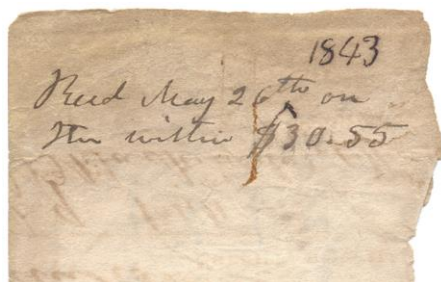 1843
Recd May 26th on
the within $30.55